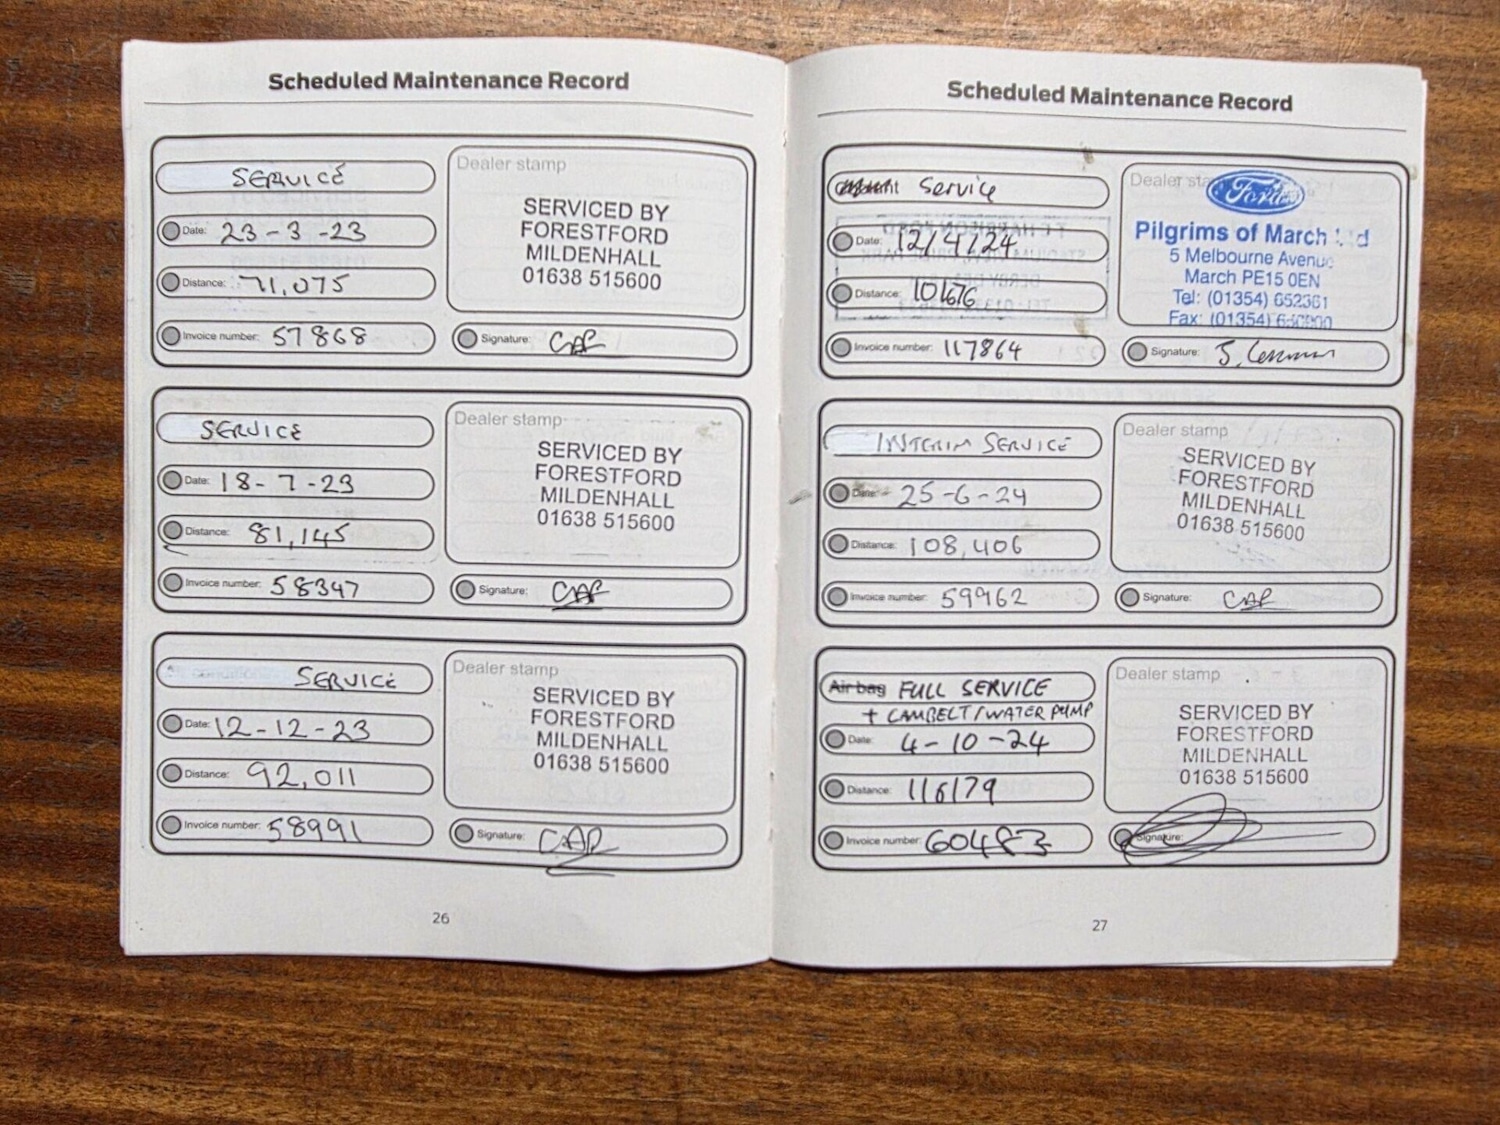 Scheduled Maintenance Record
SERVICE
Date: 23-3-23
Distance: 71,075
Invoice number: 57868
Dealer stamp
SERVICED BY
FORESTFORD
MILDENHALL
01638 515600
Signature:
SERVICE
Date: 18-7-23
Distance: 81,145
Invoice number: 58347
Dealer stamp
SERVICED BY
FORESTFORD
MILDENHALL
01638 515600
Signature:
SERVICE
Date: 12-12-23
Distance: 92,011
Invoice number: 58991
Dealer stamp
SERVICED BY
FORESTFORD
MILDENHALL
01638 515600
Signature:
26
Scheduled Maintenance Record
Service
Date: 12/4/24
Distance: 101676
Invoice number: 117864
Dealer
Ford
Pilgrims of March
5 Melbourne Avenue
March PE15 0EN
Tel: (01354) 652361
Fax: (01354)
Signature:
INTERIM SERVICE
Date: 25-6-24
Distance: 108,406
Invoice number: 59962
Dealer stamp
SERVICED BY
FORESTFORD
MILDENHALL
01638 515600
Signature:
Air bag FULL SERVICE
+ CAMBELT/WATER PUMP
Date: 4-10-24
Distance: 116179
Invoice number: 60483
Dealer stamp
SERVICED BY
FORESTFORD
MILDENHALL
01638 515600
Signature:
27